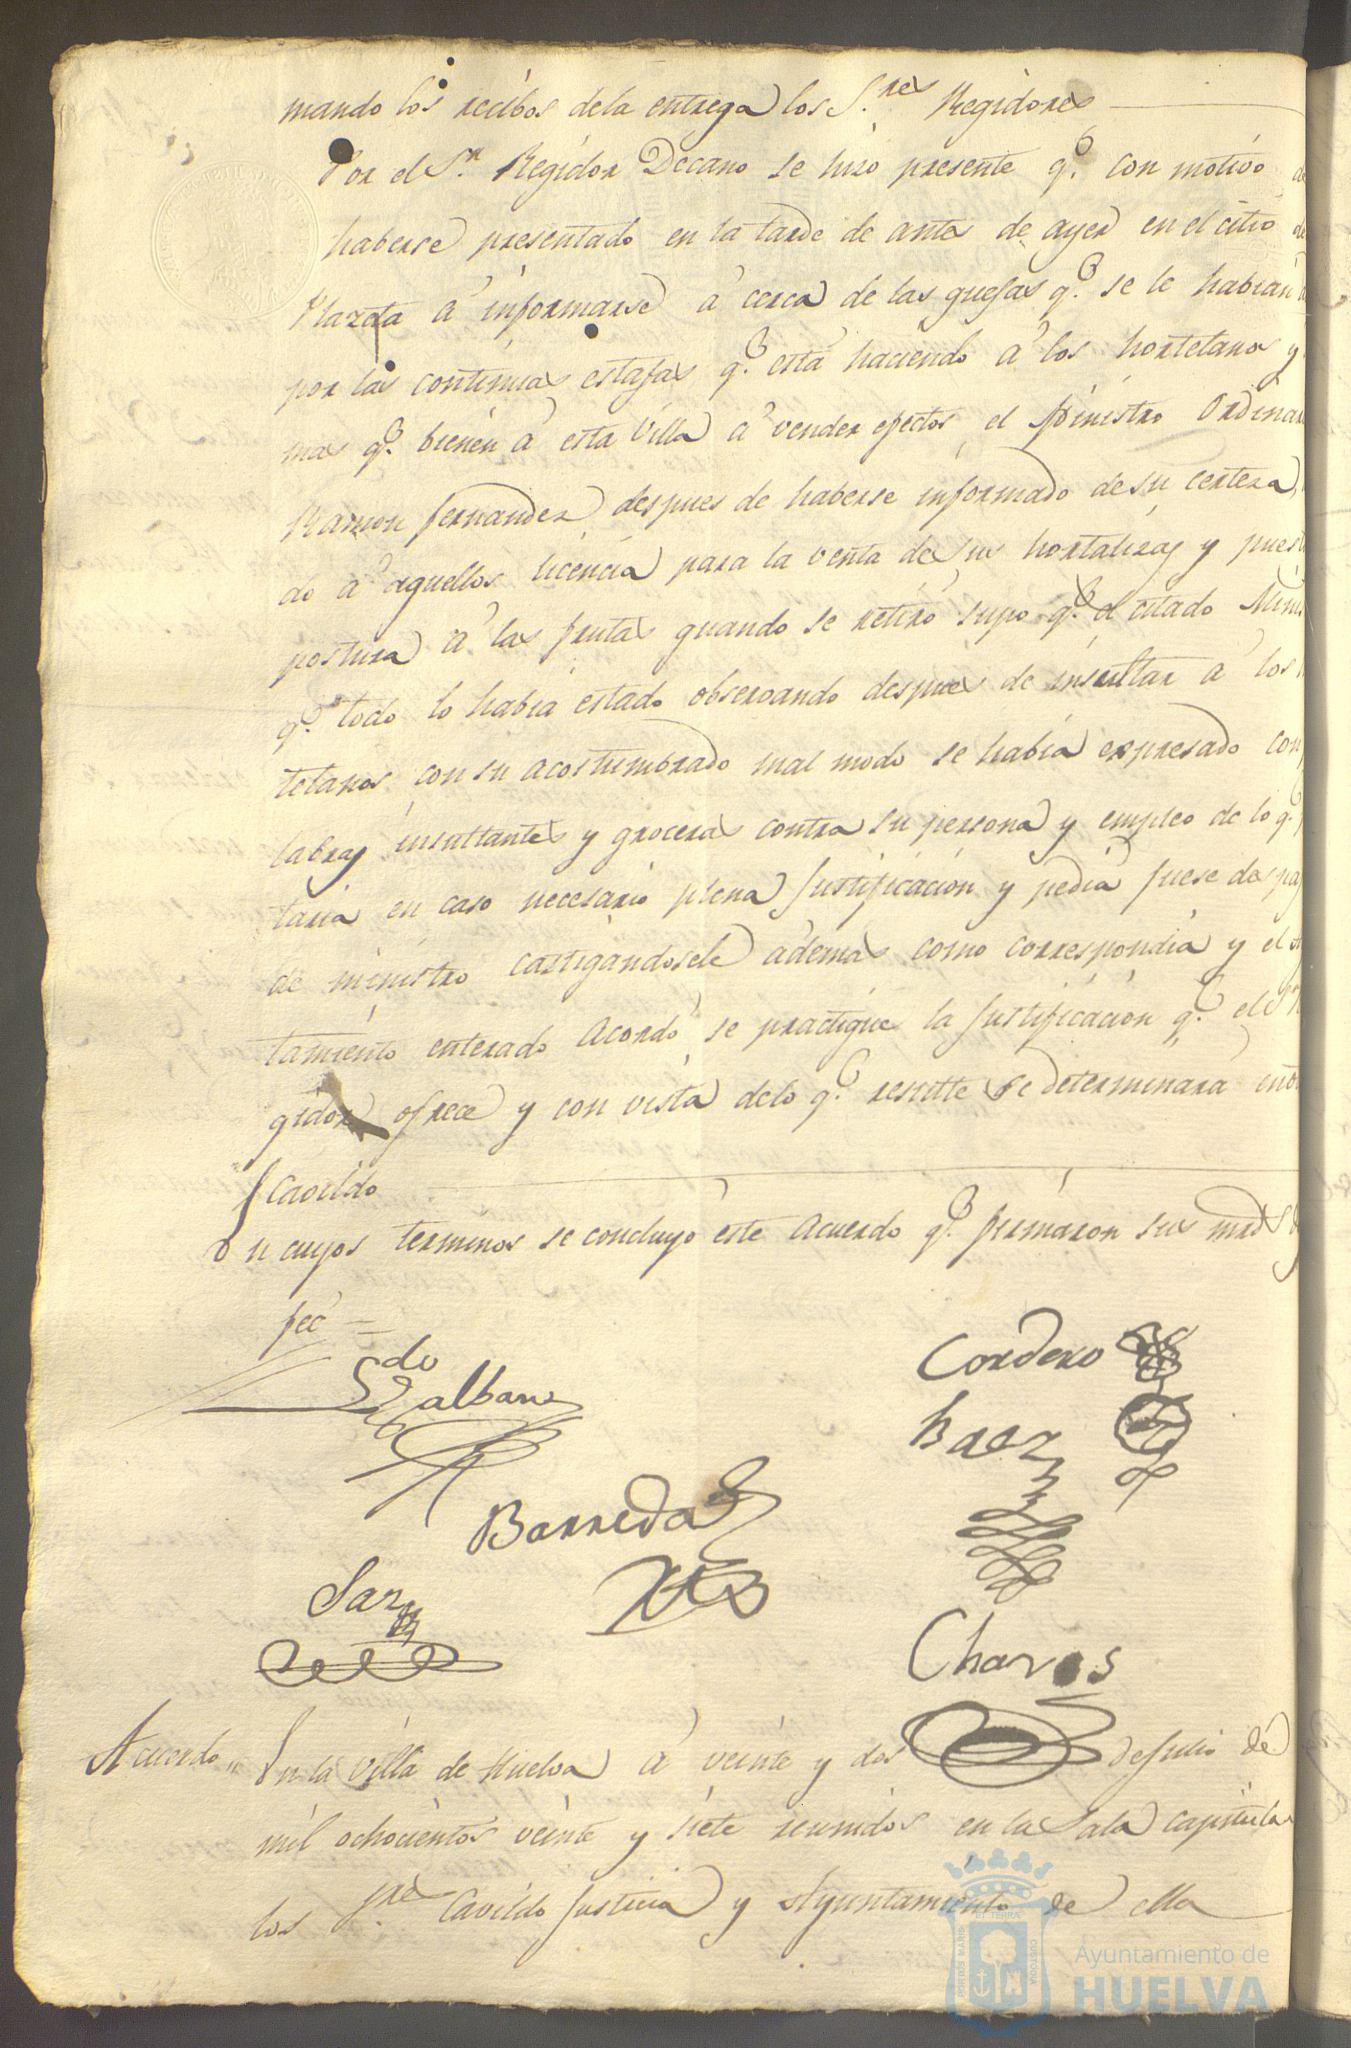 mando los recibos dela entrega los S.res Regidores
Por el S.r Regidor Decano se hizo presente q.e con motivo de
haberse presentado en la tarde de antes de ayer en el citio de
Plazeta á informarse á cerca de las quejas q.e se le habian
por las continuas estafas q.e está haciendo á los hortelanos y
mas q.e bienen á esta Villa á vender efectos el Ministro Ordinar
Ramon Fernandez despues de haberse informado de su certeza
do á aquellos licencia para la venta de sus hortalizas y puest
postura á las frutas quando se retiró supo q.e el citado Minis
q.e todo lo habia estado observando despues de insultar á los
telanos con su acostumbrado mal modo se habia expresado con
labras insultantes y groceras contra su persona y empleo de lo q.e
taria en caso necesario plena Justificacion y pedia fuese despo
de ministro castigandosele ádemas como correspondia y el
tamiento enterado Acordó se practique la Justificacion q.e el S.r
gidor ofrece y con vista delo q.e resulte se determinará en
Cavildo
En cuyos terminos se concluyó este Acuerdo q.e firmaron sus mrds
feé =
Ldo
Galban
Cordero
Baez
Barreda
Sanz
Chaves
Acuerdo,, En la Villa de Huelva á veinte y dos de Julio de
mil ochocientos veinte y siete reunidos en la Sala capitular
los S.res Cavildo Justicia y Ayuntamiento de ella
PORTUS MARIS
ET TERRAE
CUSTODIA
Ayuntamiento de
HUELVA